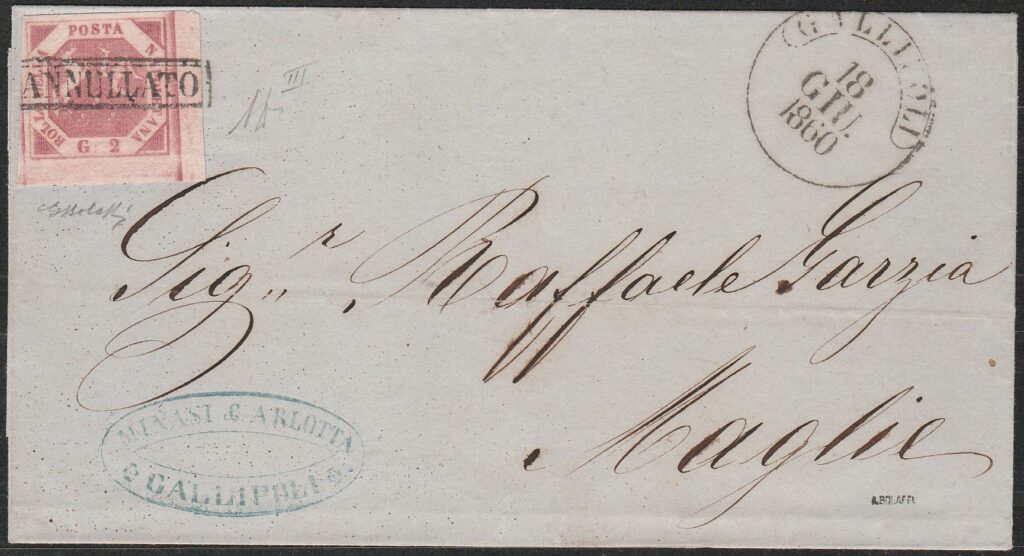 POSTA
NAPOLETANA
BOLLO
G 2
ANNULLATO
GALLIPOLI
18
GIU.
1860
III
Sigʳ Raffaele Garzia
Maglie
MINASI & ARLOTTA
GALLIPOLI
A.BOLAFFI